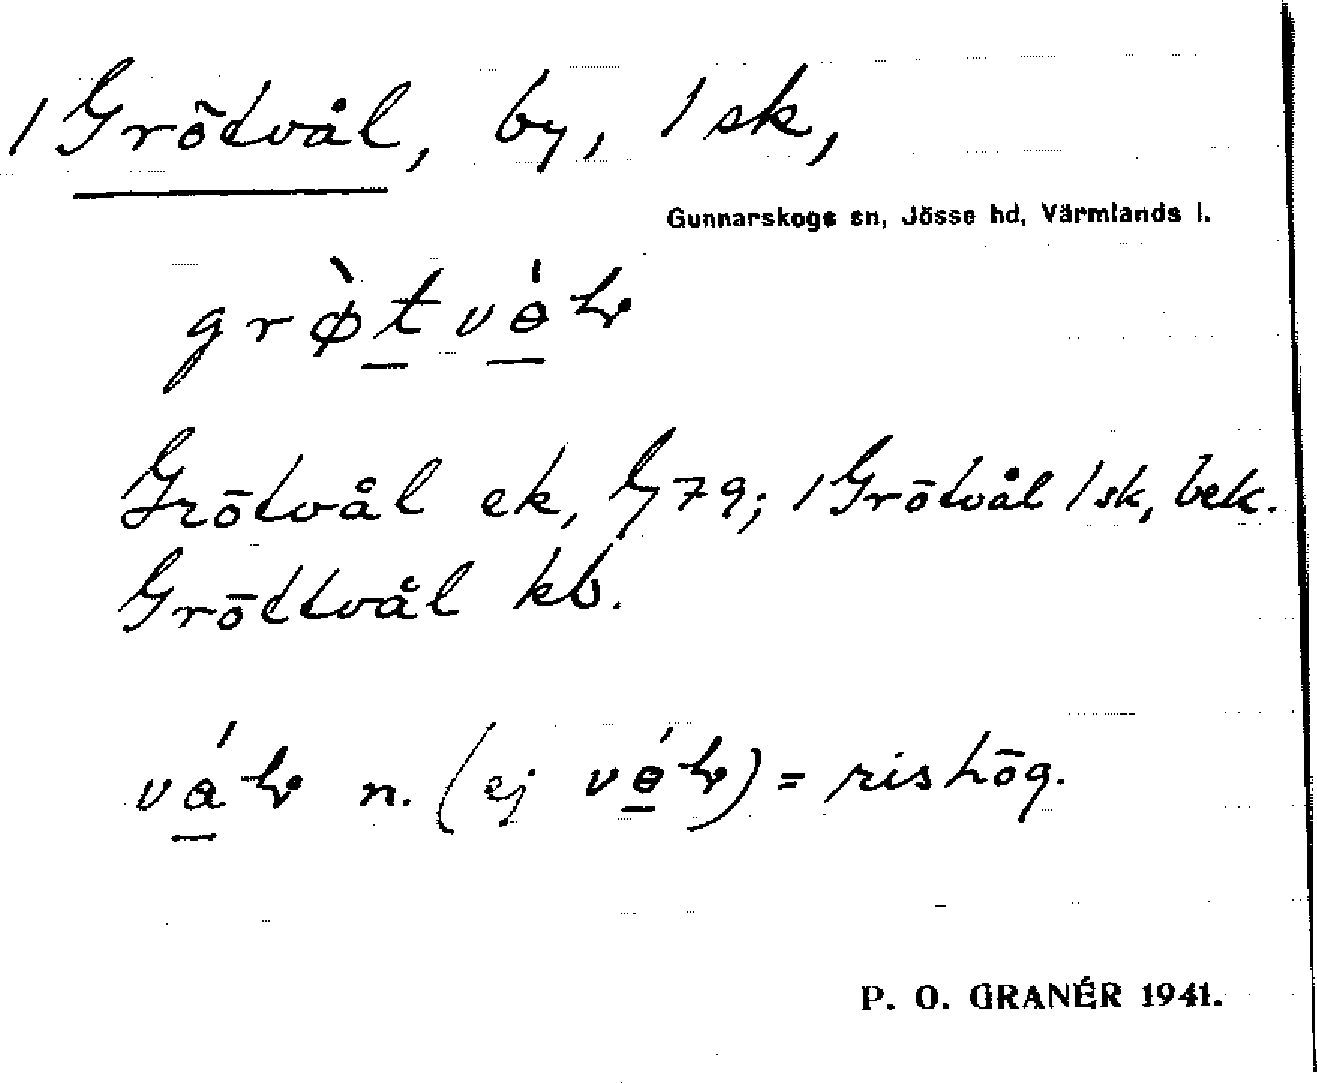 / Grötvål, by, 1 sk,
Gunnarskogs sn, Jösse hd, Värmlands l.
Grötvål ek, G79; / Grötvål 1 sk, bek.
Gröttvål kb.
n. (ej = rishög.
P. O. GRANÉR 1941.